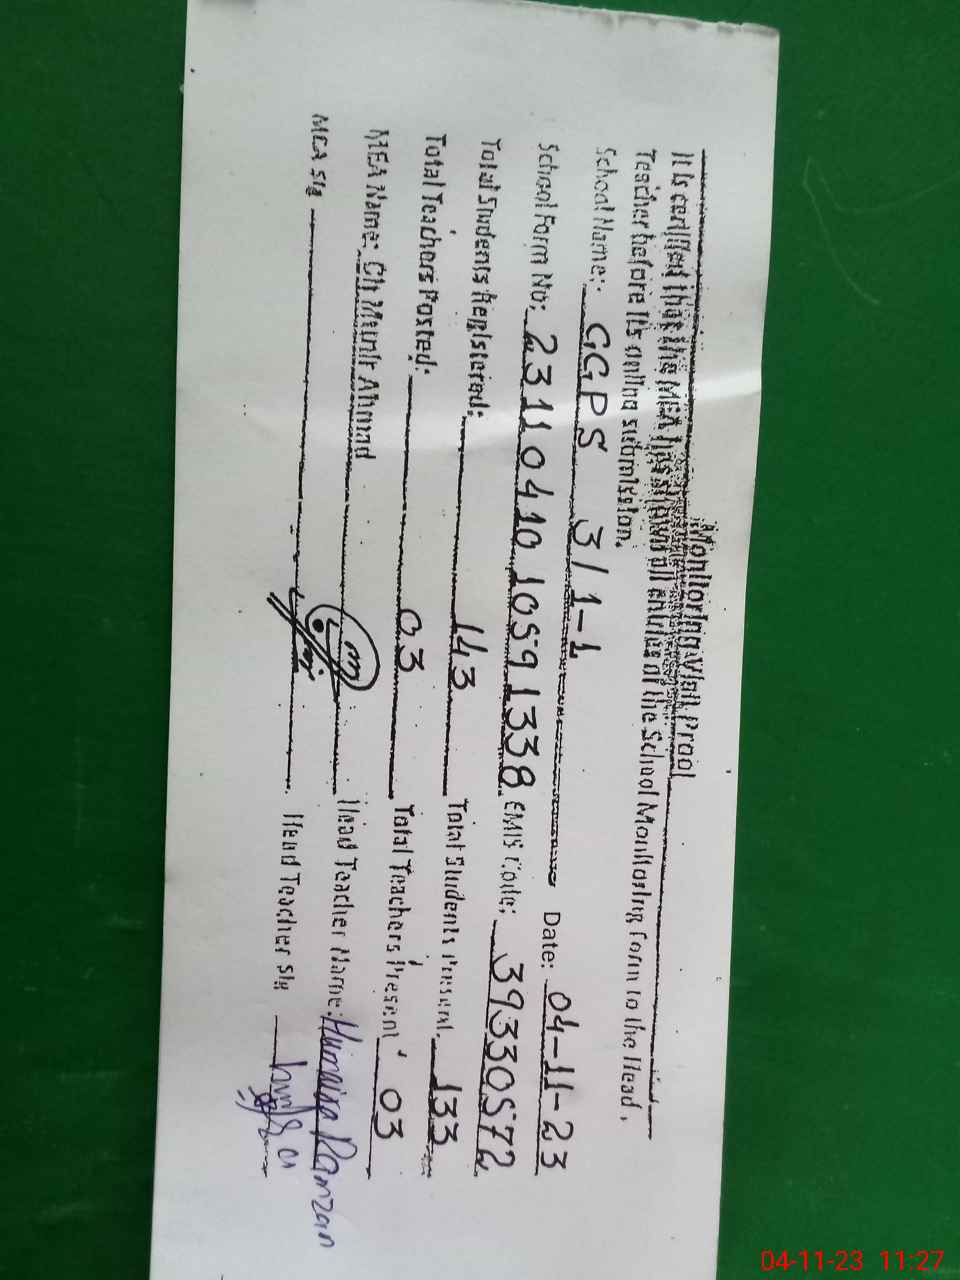 Monitoring Visit Proof
It is certified that the MEA has shown all entries of the School Monitoring Form to the Head
Teacher before it's online submission.
School Name: GGPS 3/1-L Date: 04-11-23
School Form No: 23110410 10591338 EMIS Code: 39330572
Total Students Registered: 143 Total Students Present: 133
Total Teachers Posted: 03 Total Teachers Present 03
MEA Name: Ch Munir Ahmad Head Teacher Name: Humaira Ramzan
MEA Sig Head Teacher Sig
04-11-23 11:27